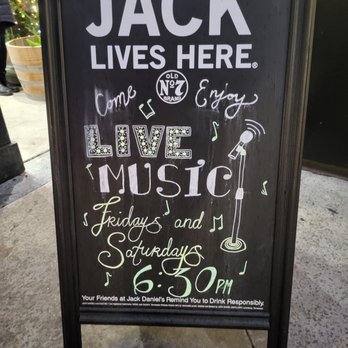 JACK
LIVES HERE.®
OLD
Nº7
BRAND
Come Enjoy
LIVE
MUSIC
Fridays and
Saturdays
6:30PM
Your Friends at Jack Daniel's Remind You to Drink Responsibly.